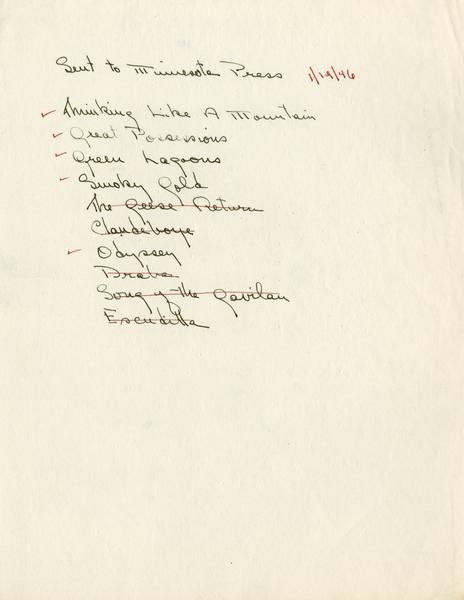 Sent to Minnesota Press 1/19/46
✓ Thinking Like A Mountain
✓ Great Possessions
✓ Green Lagoons
✓ Smoky Gold
The Geese Return
Clandeboye
✓ Odyssey
Draba
Song of The Gavilan
Escudilla